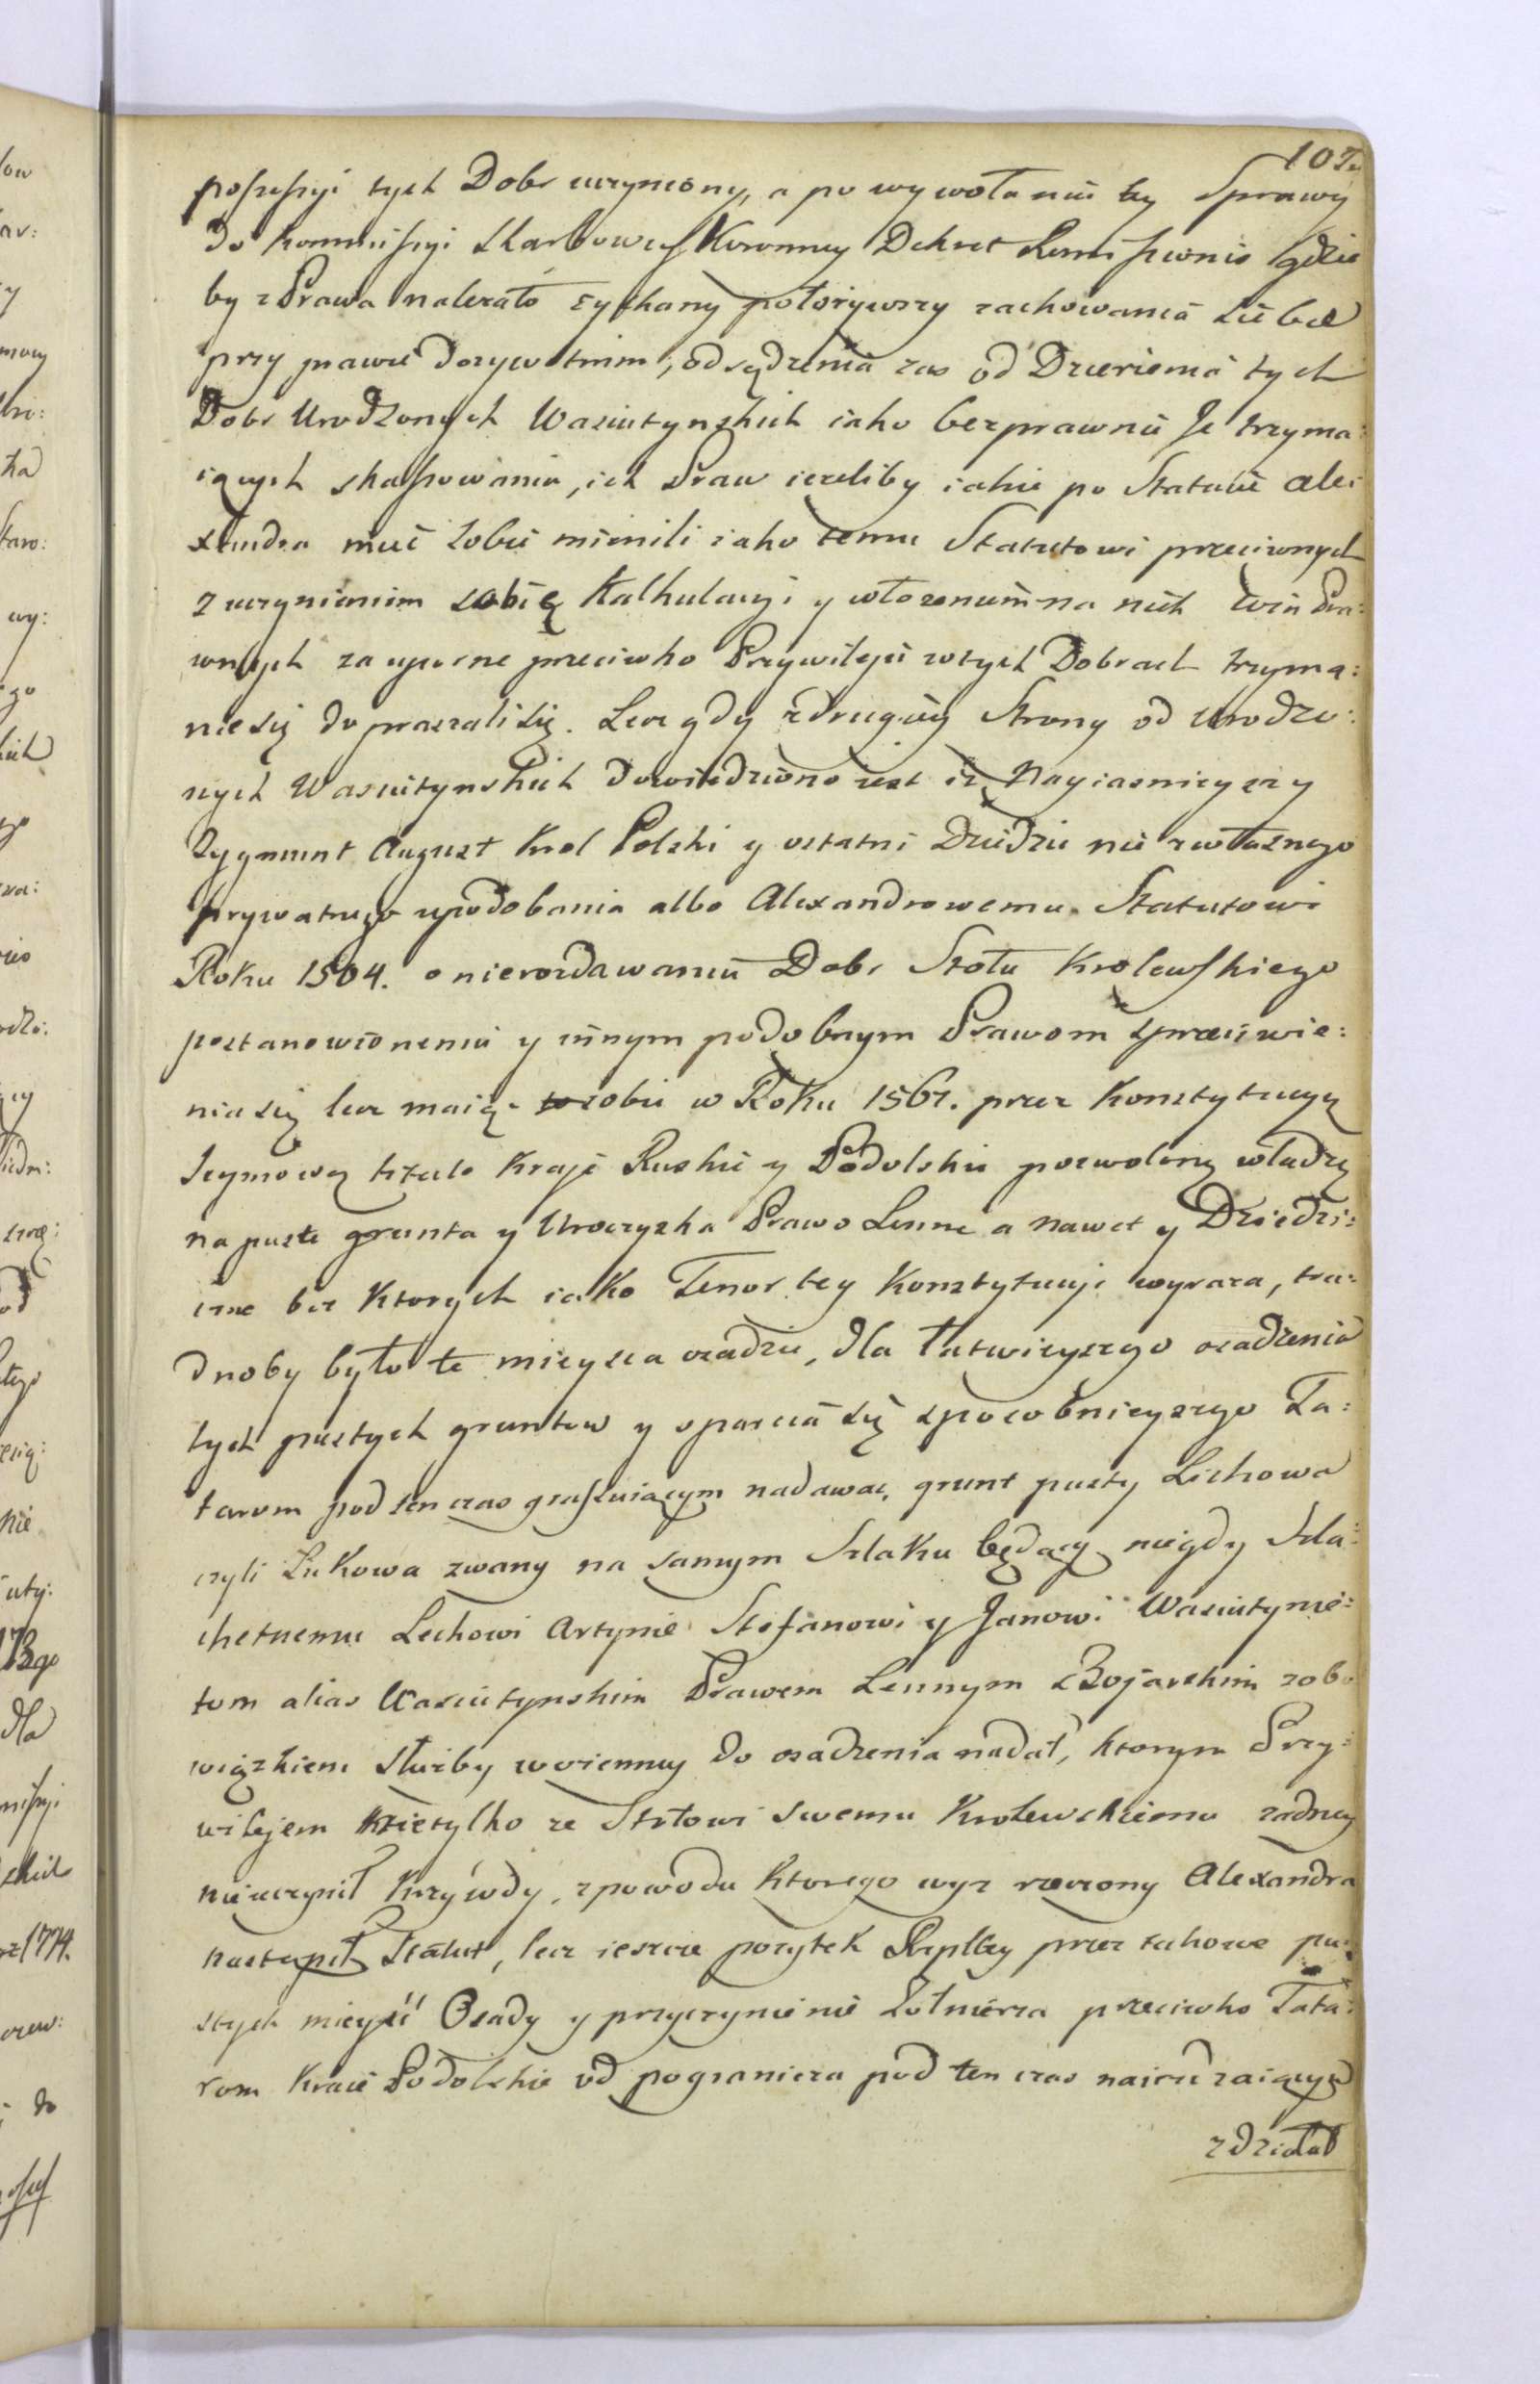 107.
possessyi tych Dobr uczyniony, a po wywołaniu tey Sprawy
do Kommissyi Skarbowey Koronney Dekret Remissionis gdzie
by z Prawa należało zyskany położywszy zachowania Siebie
przy prawie dożywotnim, odsądzenia zas od Dzierżenia tych
Dobr Urodzonych Wasiutynskich iako bezprawnie Je trzyma:
iących skassowania, ich Praw ieżeliby iakie po Statucie Ale:
xandra mieć sobie mienili iako temu Statutowi przeciwnych
z uczynieniem sobie Kalkulacyi y włożeniem na nich Win Pra:
wnych za uporne przeciwko Przywileju w tych Dobrach trzyma:
nie się dopraszali się. Lecz gdy z drugiey Strony od Urodzo:
nych Wasiutynskich dowiedziono iest iż Nayiasnieyszy
Zygmunt August Krol Polski y ostatni Dziedzic nie z własnego
prywatnego upodobania albo Alexandrowemu Statutowi
Roku 1504. o nierozdawaniu Dobr Stołu Krolewskiego
postanowionemu y innym podobnym Prawom sprzeciwie:
nia się lecz maiąc sobie w Roku 1567. przez Konstytucyą
Seymową titulo Kraje Ruskie y Podolskie pozwoloną władzę
na puste grunta y Uroczyska Prawo Lenne a nawet y Dziedzi:
czne bez Ktorych iako Tenor tey Konstytucyi wyraza, tru:
dnoby było te mieysca osadzic, dla łatwieyszego osadzenia
tych pustych gruntow y oparcia się sposobnieyszego Ta:
tarom pod ten czas grassuiącym nadawac, grunt pusty Lichowa
czyli Lukowa zwany na samym Szlaku będący niegdy Szla:
chetnemu Lechowi Artynie Stefanowi y Janowi Wasiutynie:
tom alias Wasiutynskim Prawem Lennym Bojarskim z obo
wiązkiem słuzby woienney do osadzenia nadał, ktorym Przy:
wilejem nietylko ze Stołowi swemu Krolewskiemu zadney
nieuczynił Krzywdy, z powodu Ktorego wyz rzeczony Alexandra
nastąpił Statut, lecz ieszcze pożytek Rzpltey przez takowe pu:
stych mieysc Osady y przyczynienie Żołnierza przeciwko Tata:
rom Kraie Podolskie od pogranicza pod ten czas naieżdzaiącym
zdziałał